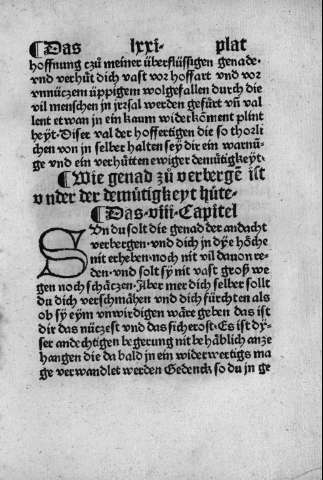 ¶Das lxxi· plat
hoffnung czů meiner überflüssigen genade·
vnd verhüt dich vast vor hoffart vnd vor
vnnüczem üppigem wolgefallen durch die
vil menschen jn jrzsal werden gefürt vñ val
lent etwan jn ein kaum widerkēment plint
heyt· Diser val der hoffertigen die so thorli
chen von jn selber halten sey dir ein warnũ⸗
ge vnd ein verhütten ewiger demütigkeyt·
¶Wie genad zů verbergē ist
vnder der demütigkeyt hüte·
¶Das·viii·Capitel
SVn du solt die genad der andacht
verbergen· vnd dich jn dye höche
nit erheben· noch nit vil dauon re⸗
den· vnd solt sy nit vast groß we
gen noch schäczen· Aber mer dich selber sollt
du dich verschmähen vnd dich fürchten als
ob sy eym vnwirdigen wäre geben das ist
dir das nüczest vnd das sicherost· Es ist dy⸗
ser andechtigen begerung nit behäblich anze
hangen die da bald jn ein widerwertigs ma
ge verwandlet werden Gedenck so du jn ge